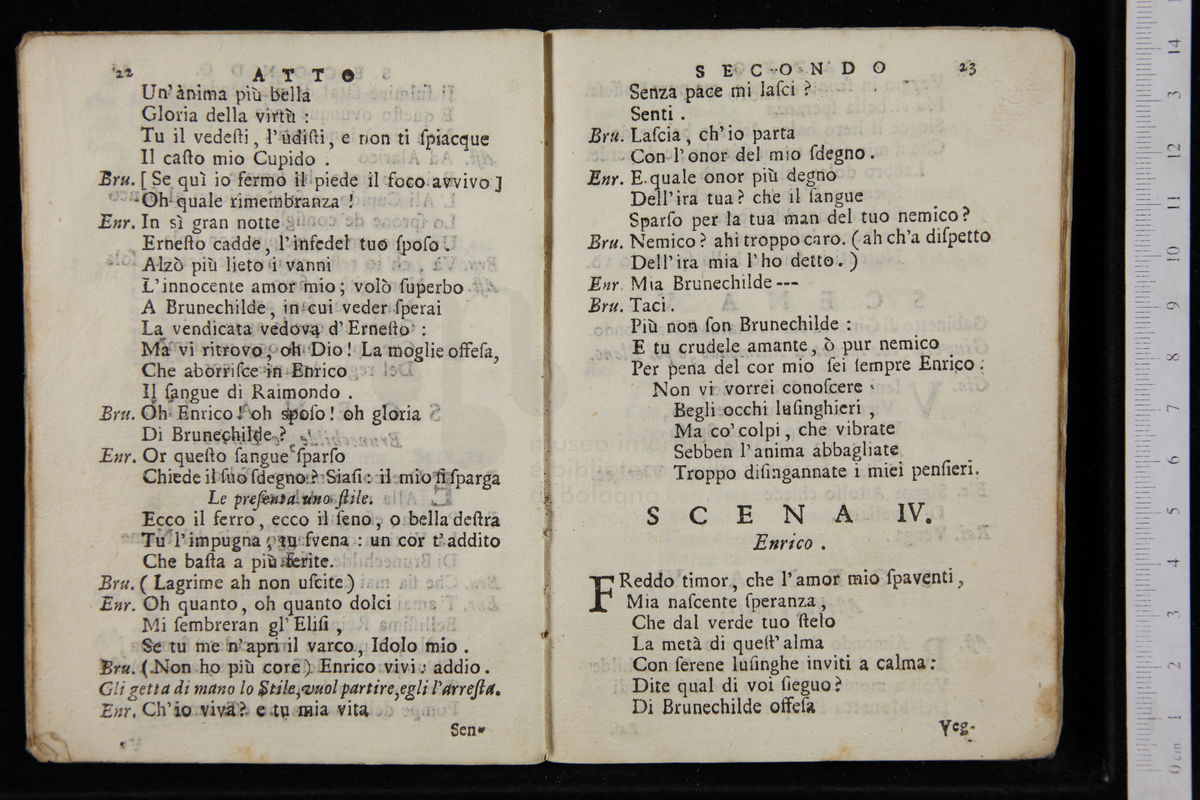 22 ATTO
Un' ànima più bella
Gloria della virtù :
Tu il vedeſti , l'udiſti , e non ti ſpiacque
Il caſto mio Cupido .
Bru. [ Se quì io fermo il piede il foco avvivo ]
Oh quale rimembranza !
Enr. In sì gran notte
Erneſto cadde , l'infedel tuo ſpoſo .
Alzò più lieto i vanni
L'innocente amor mio ; volò ſuperbo
A Brunechilde , in cui veder ſperai
La vendicata vedova d'Erneſto :
Ma vi ritrovo , oh Dio ! La moglie offeſa,
Che aborriſce in Enrico
Il ſangue di Raimondo .
Bru. Oh Enrico ! oh ſpoſo ! oh gloria
Di Brunechilde ?
Enr. Or queſto ſangue ſparſo
Chiede il ſuo ſdegno ? Siaſi : il mio ſi ſparga
Le preſenta uno ſtile.
Ecco il ferro , ecco il ſeno , o bella deſtra
Tu l'impugna ; tu ſvena : un cor t'addito
Che baſta a più ferite.
Bru. ( Lagrime ah non uſcite )
Enr. Oh quanto , oh quanto dolci
Mi ſembreran gl'Eliſi ,
Se tu me n'apri il varco , Idolo mio .
Bru. ( Non ho più core ) Enrico vivi : addio .
Gli getta di mano lo Stile, vuol partire, egli l'arreſta.
Enr. Ch'io viva ? e tu mia vita
Sen-
SECONDO 23
Senza pace mi laſci ?
Senti .
Bru. Laſcia , ch'io parta
Con l'onor del mio ſdegno .
Enr. E quale onor più degno
Dell'ira tua ? che il ſangue
Sparſo per la tua man del tuo nemico ?
Bru. Nemico ? ahi troppo caro. ( ah ch'a diſpetto
Dell'ira mia l'ho detto . )
Enr. Mia Brunechilde ---
Bru. Taci .
Più non ſon Brunechilde :
E tu crudele amante , ò pur nemico
Per pena del cor mio ſei ſempre Enrico :
Non vi vorrei conoſcere
Begli occhi luſinghieri ,
Ma co' colpi , che vibrate
Sebben l'anima abbagliate
Troppo diſingannate i miei penſieri.
SCENA IV.
Enrico .
FReddo timor , che l'amor mio ſpaventi ,
Mia naſcente ſperanza ,
Che dal verde tuo ſtelo
La metà di queſt'alma
Con ſerene luſinghe inviti a calma :
Dite qual di voi ſieguo ?
Di Brunechilde offeſa
Veg-